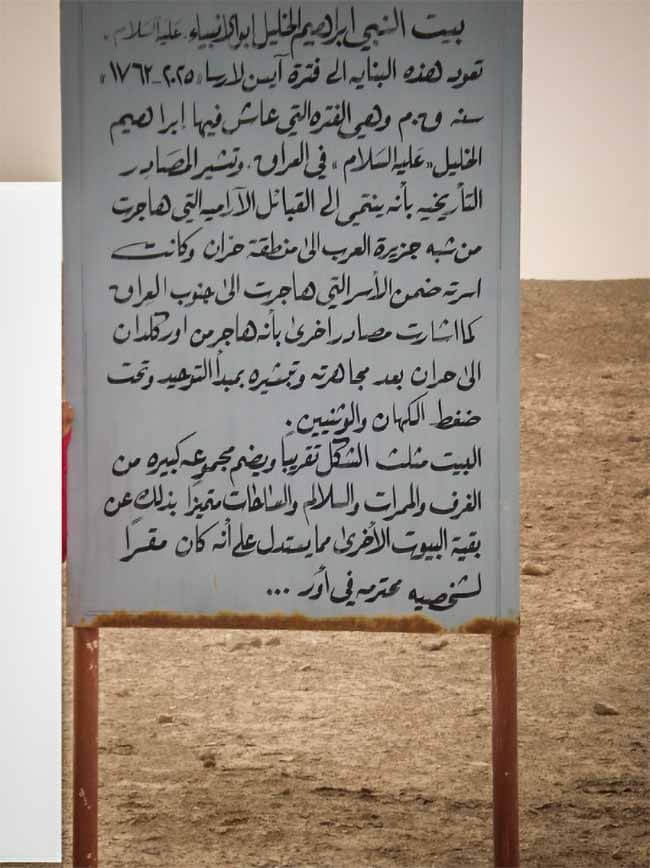 بيت النبي ابراهيم الخليل ابو الانبياء. عليه السلام.
تعود هذه البنايه الى فترة آيسن لارسا «٢٠٢٥-١٧٦٢»
سنه ق.م وهي الفتره التي عاش فيها إبراهيم
الخليل «عليه السلام» في العراق. وتشير المصادر
التأريخيه بأنه ينتمي الى القبائل الآراميه التي هاجرت
من شبه جزيرة العرب الى منطقة حرّان وكانت
اسرته ضمن الأسر التي هاجرت الى جنوب العراق
كما اشارت مصادر اخرى بأنه هاجر من اور كلدان
الى حران بعد مجاهرته وتبشيره بمبدأ التوحيد وتحت
ضغط الكهان والوثنيين.
البيت مثلث الشكل تقريباً ويضم مجموعه كبيره من
الغرف والممرات والسلالم والساحات متميزاً بذلك عن
بقية البيوت الأخرى مما يستدل على أنه كان مقراً
لشخصيه محترمه في أور ...